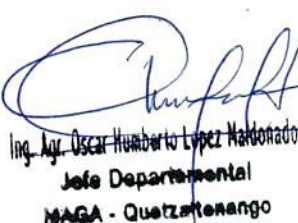 Ing. Agr. Oscar Humberto López Maldonado
Jefe Departamental
MAGA - Quetzaltenango